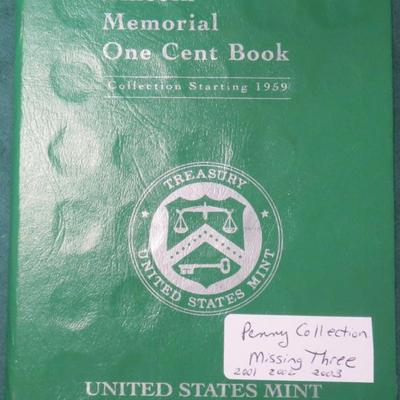 Memorial
One Cent Book
Collection Starting 1959
TREASURY
UNITED STATES MINT
Penny Collection
Missing Three
2001 2002 2003
UNITED STATES MINT